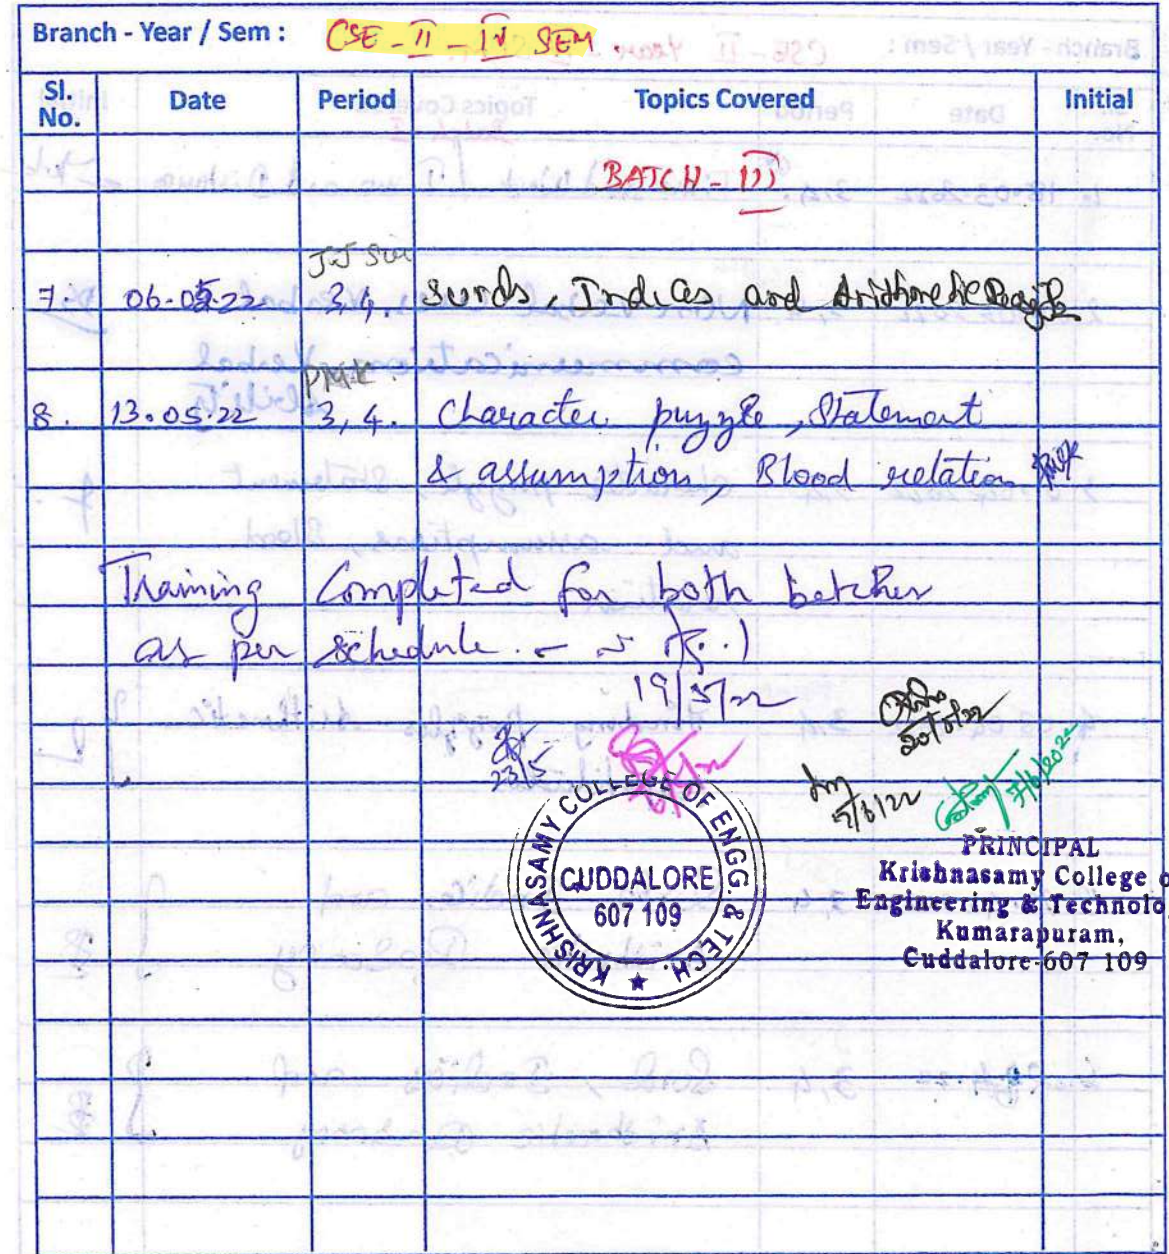 Branch - Year / Sem : CSE - II - IV SEM.
Sl. No. Date Period Topics Covered Initial
BATCH - III
J.J Sir
7. 06.05.22 3,4. Surds, Indices and Arithmetic
PMK
8. 13.05.22 3, 4. Character puzzle, Statement
& assumption, Blood relation
Training Completed for both batches
as per schedule.
19/5/22
20/5/22
23/5
7/6/2022
KRISHNASAMY COLLEGE OF ENGG & TECH.
CUDDALORE
607 109
PRINCIPAL
Krishnasamy College o
Engineering & Technolo
Kumarapuram,
Cuddalore-607 109